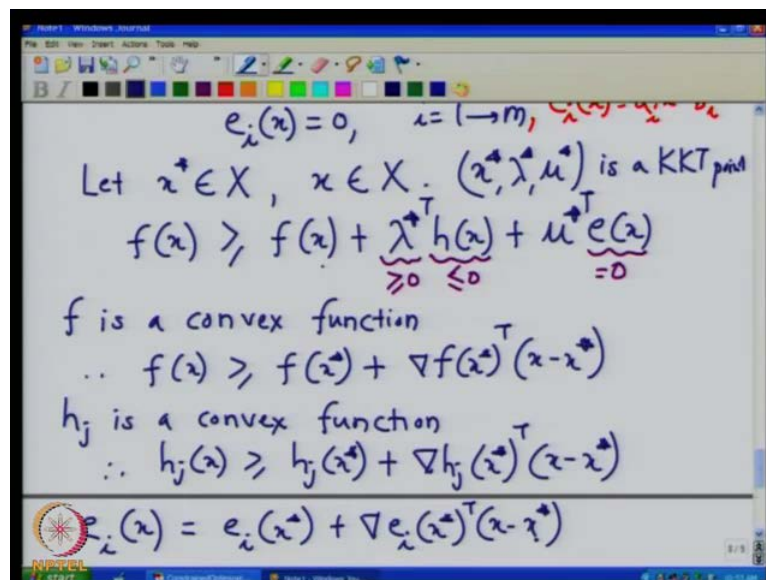 Note1 - Windows Journal
File Edit View Insert Actions Tools Help
B I
e_i(x) = 0, i = 1 → m, e_i(x) = a_i^T x - b_i
Let x* ∈ X, x ∈ X. (x*, λ*, μ*) is a KKT point
f(x) ≥ f(x) + λ*^T h(x) + μ*^T e(x)
≥0 ≤0 =0
f is a convex function
∴ f(x) ≥ f(x*) + ∇f(x*)^T (x-x*)
h_j is a convex function
∴ h_j(x) ≥ h_j(x*) + ∇h_j(x*)^T (x-x*)
e_i(x) = e_i(x*) + ∇e_i(x*)^T (x-x*)
NPTEL
start
Note1 - Windows Jour